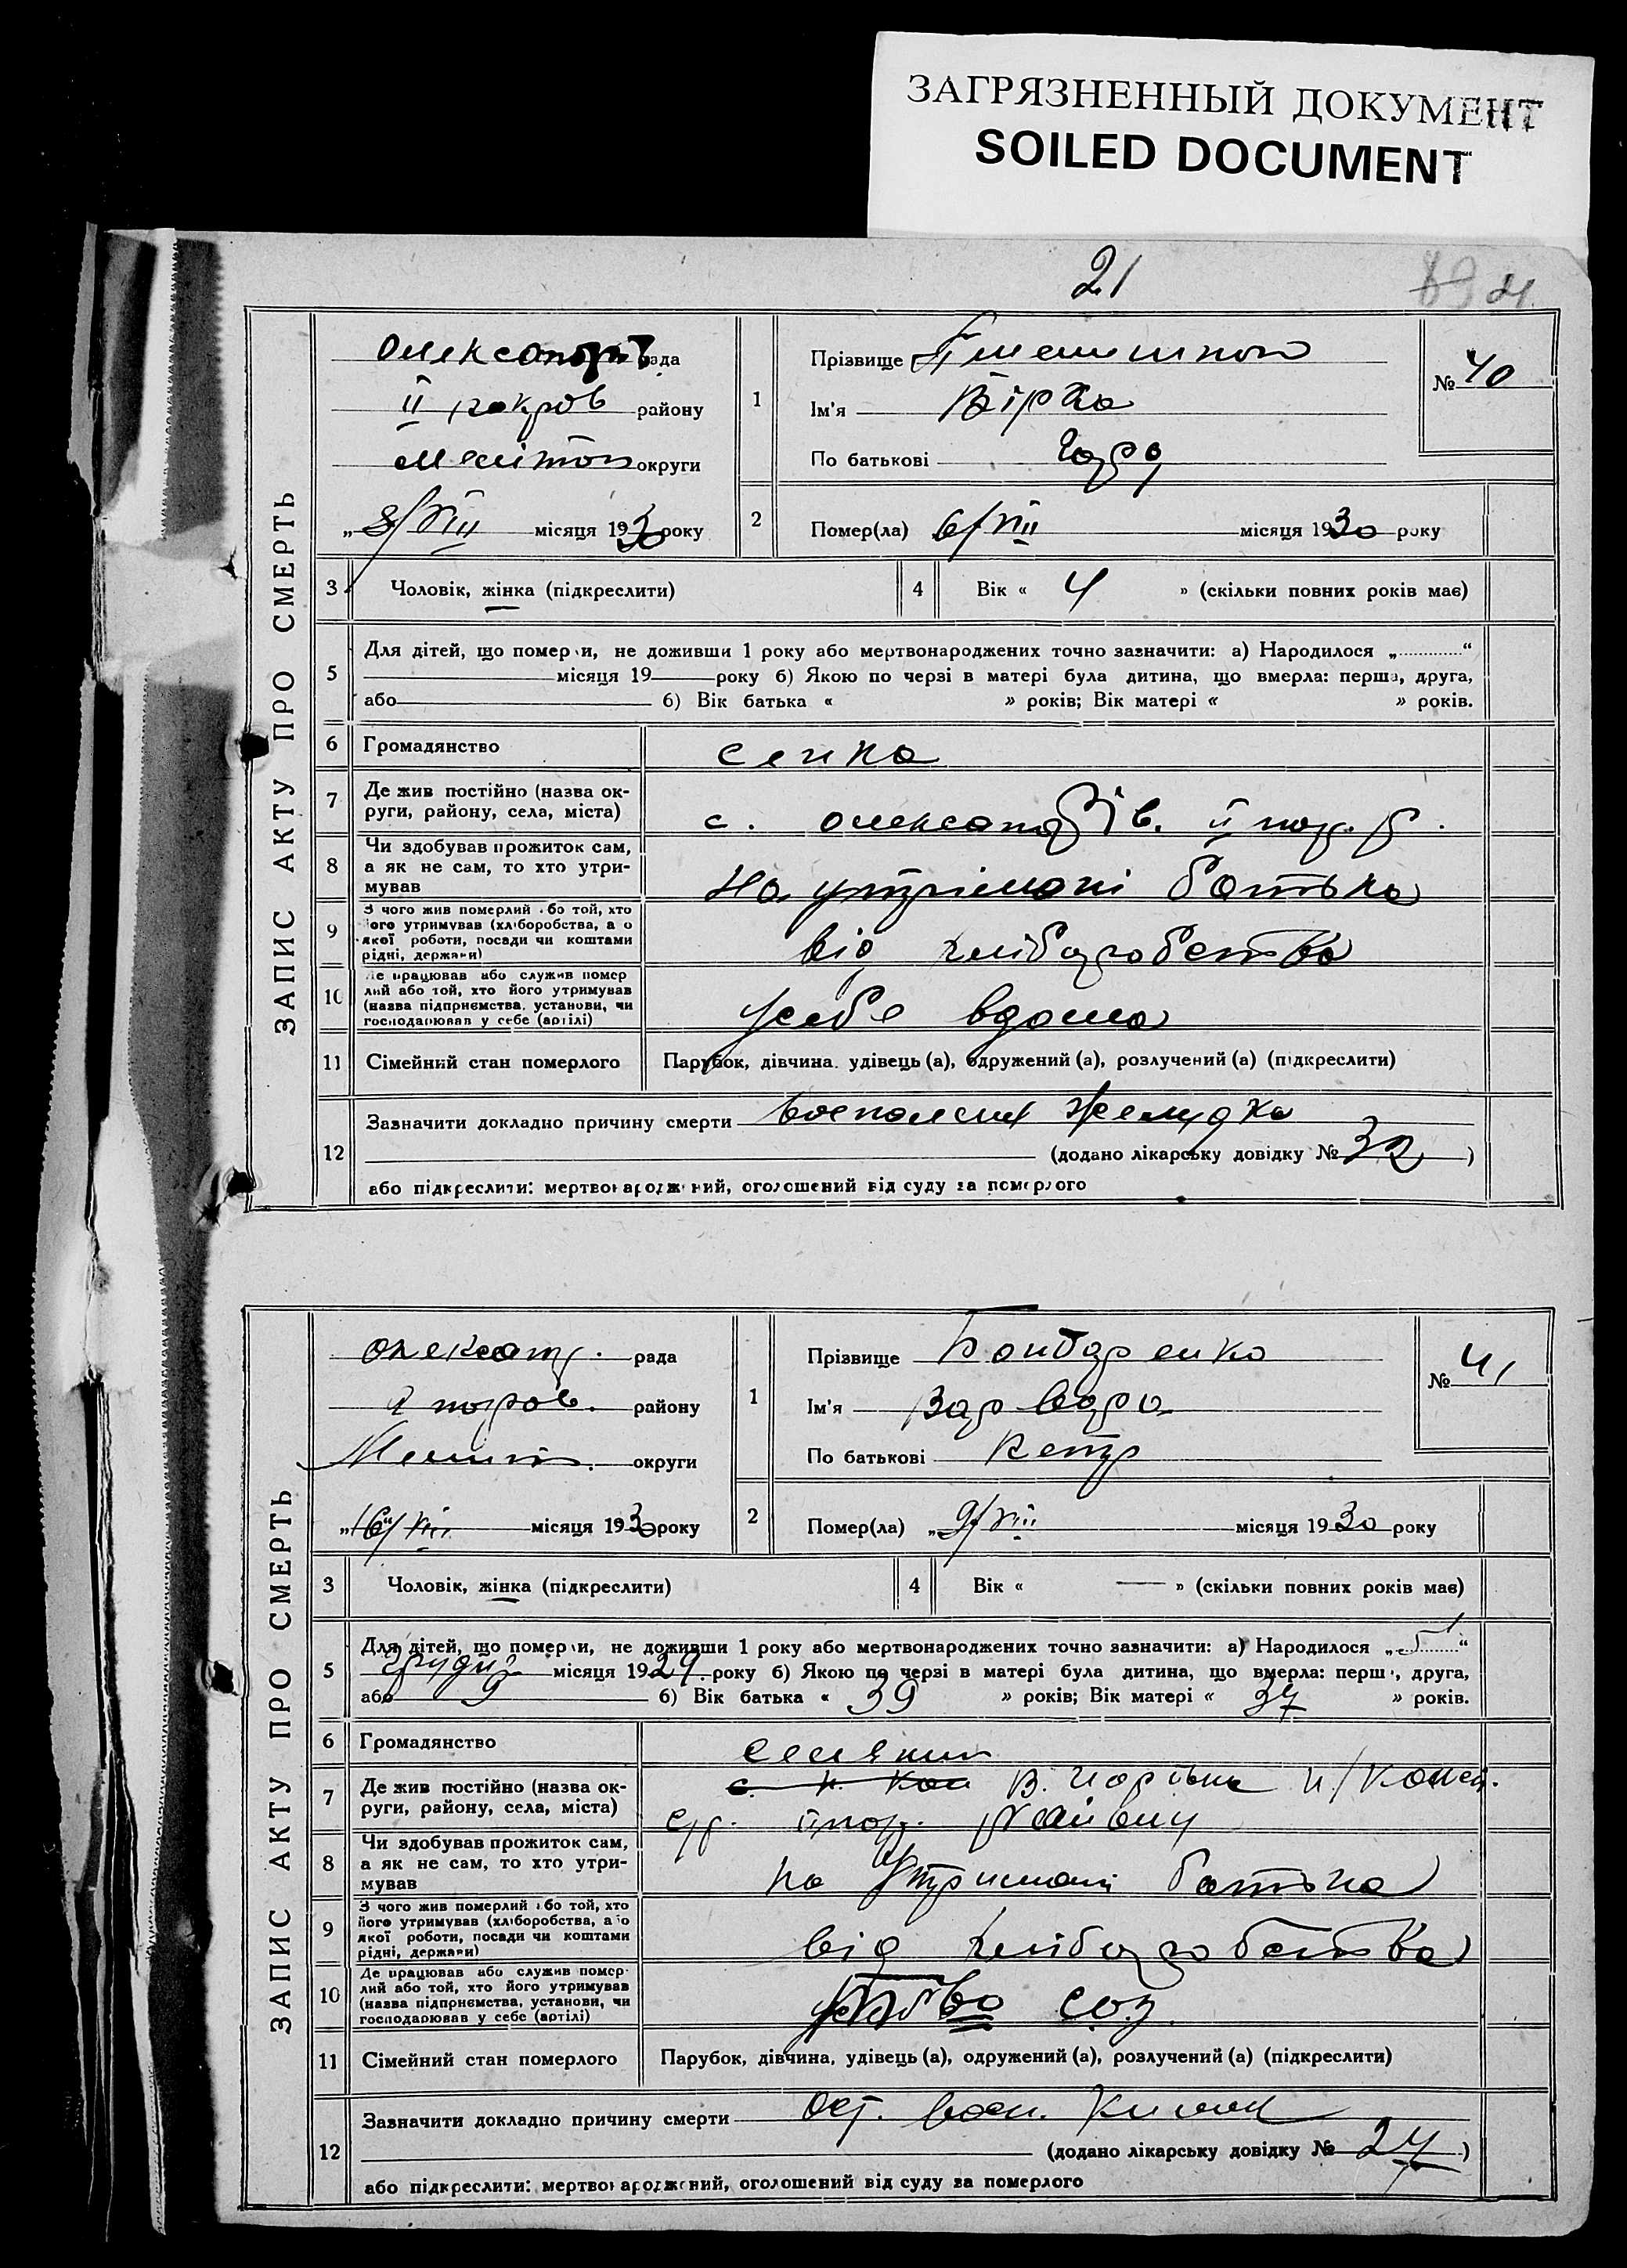 ЗАГРЯЗНЕННЫЙ ДОКУМЕНТ
SOILED DOCUMENT
21
ЗАПИС АКТУ ПРО СМЕРТЬ
рада
II району
Меліто округи
„8/VIII місяця 1930 року
1
Прізвище
Ім'я
По батькові
№ 40
2
Помер(ла) 6/VIII місяця 1930 року
3 Чоловік, жінка (підкреслити)
4 Вік « 4 » (скільки повних років має)
5 Для дітей, що померли, не доживши 1 року або мертвонароджених точно зазначити: а) Народилося „ “
місяця 19 року б) Якою по черзі в матері була дитина, що вмерла: перша, друга,
або б) Вік батька « » років; Вік матері « » років.
6 Громадянство
7 Де жив постійно (назва ок-
руги, району, села, міста)
с.
8 Чи здобував прожиток сам,
а як не сам, то хто утри-
мував
на утрімані батька
9 З чого жив померлий або той, хто
його утримував (хліборобства, або
якої роботи, посади чи коштами
рідні, держави)
від хліборобства
10 Де працював або служив помер
лий або той, хто його утримував
(назва підприємства, установи, чи
господарював у себе (артілі)
у себе вдома
11 Сімейний стан померлого
Парубок, дівчина, удівець (а), одружений (а), розлучений (а) (підкреслити)
12 Зазначити докладно причину смерти воспалени желудка
(додано лікарську довідку № 32)
або підкреслити: мертвонароджений, оголошений від суду за померлого
ЗАПИС АКТУ ПРО СМЕРТЬ
рада
району
округи
„16/VIII місяця 1930 року
1
Прізвище Бондаренко
Ім'я Варвара
По батькові Петр
№ 41
2
Помер(ла) „9/VIII місяця 1930 року
3 Чоловік, жінка (підкреслити)
4 Вік « — » (скільки повних років має)
5 Для дітей, що померли, не доживши 1 року або мертвонароджених точно зазначити: а) Народилося „ “
грудня місяця 1929 року б) Якою по черзі в матері була дитина, що вмерла: перша, друга,
або 9 б) Вік батька « 39 » років; Вік матері « 37 » років.
6 Громадянство
7 Де жив постійно (назва ок-
руги, району, села, міста)
району
8 Чи здобував прожиток сам,
а як не сам, то хто утри-
мував
на утримані батька
9 З чого жив померлий або той, хто
його утримував (хліборобства, або
якої роботи, посади чи коштами
рідні, держави)
від хліборобства
10 Де працював або служив помер-
лий або той, хто його утримував
(назва підприємства, установи, чи
господарював у себе (артілі)
соз
11 Сімейний стан померлого
Парубок, дівчина, удівець (а), одружений (а), розлучений (а) (підкреслити)
12 Зазначити докладно причину смерти ост. восп. кишек
(додано лікарську довідку № 24)
або підкреслити: мертвонароджений, оголошений від суду за померлого